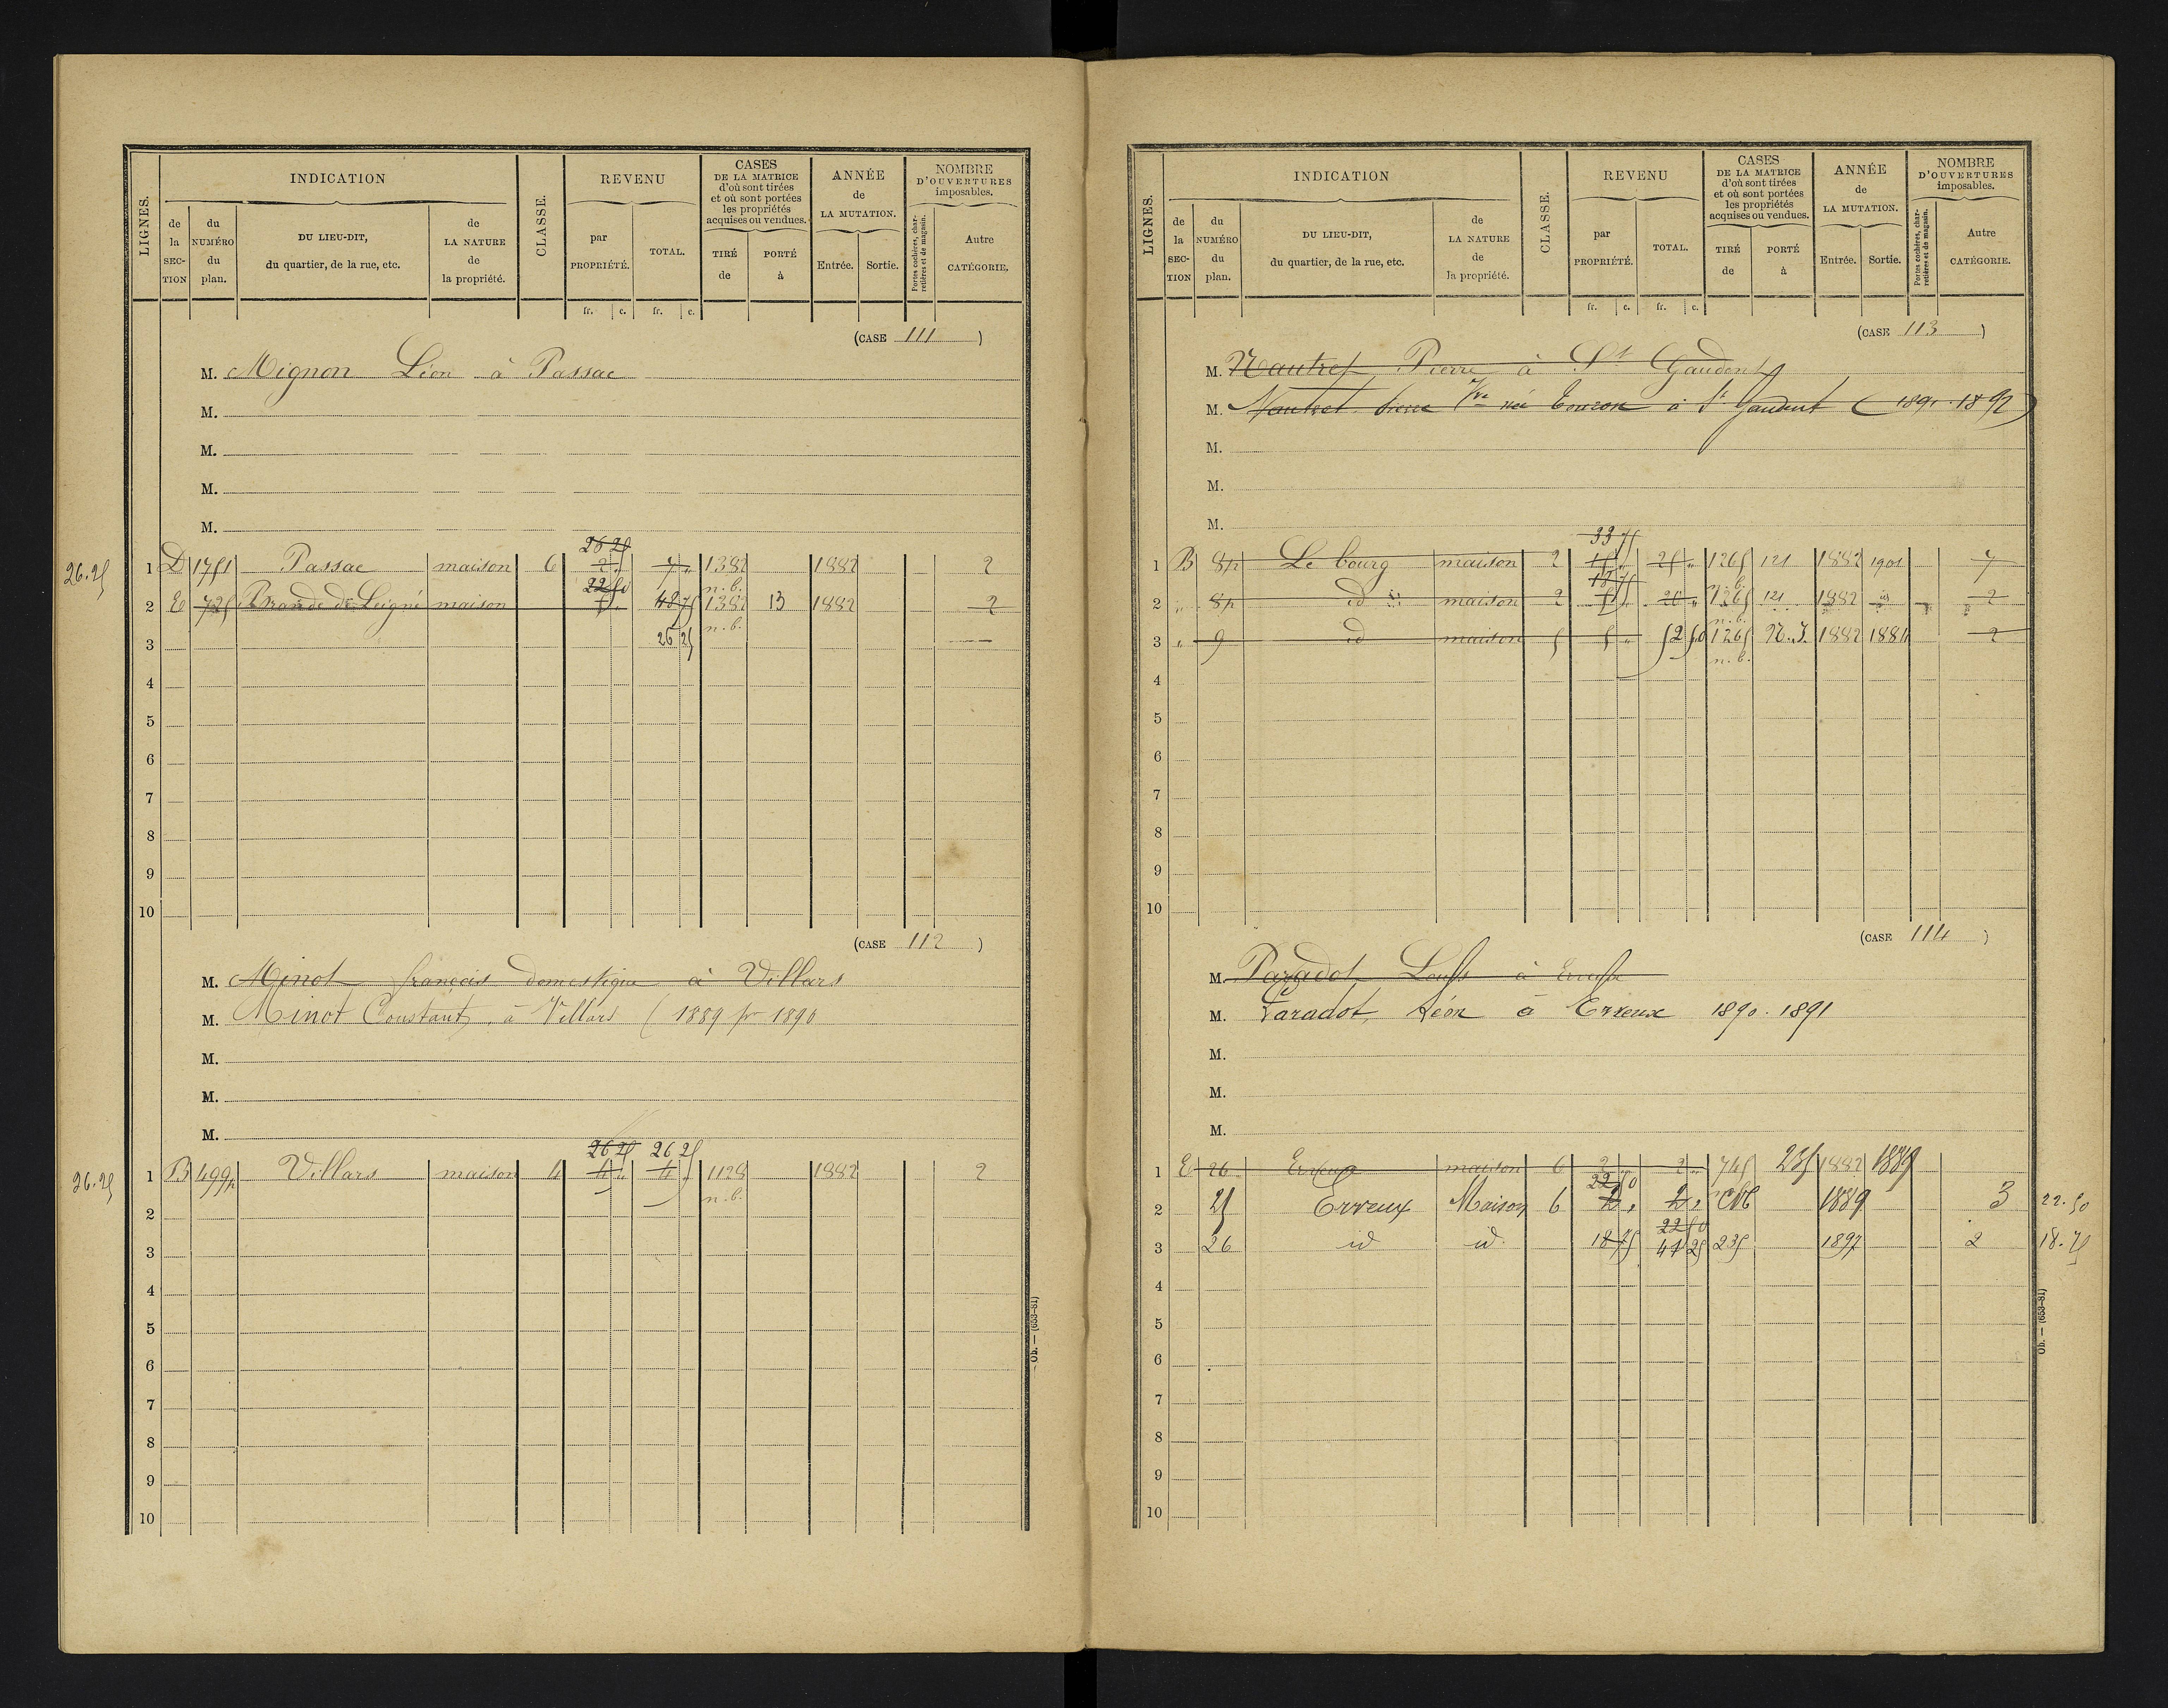 LIGNES.
INDICATION
de la SECTION
du NUMÉRO du plan.
DU LIEU-DIT, du quartier, de la rue, etc.
de LA NATURE de la propriété.
CLASSE.
REVENU
par PROPRIÉTÉ.
TOTAL.
fr. c. fr. c.
CASES DE LA MATRICE d'où sont tirées et où sont portées les propriétés acquises ou vendues.
TIRÉ de
PORTÉ à
ANNÉE de LA MUTATION.
Entrée. Sortie.
NOMBRE D'OUVERTURES imposables.
Portes cochères, charretières et de magasin.
Autre CATÉGORIE.
(CASE 111)
M. Mignon Léon à Passac
M.
M.
M.
M.
26 25
26.25 1 D 1751 Passac maison 6 2 " 7 " 1382 1882 2
22 50 n. b.
2 E 725 Brande de Leigné maison 48 75 1382 13 1882 2
3 26 25 n. b.
4
5
6
7
8
9
10
(CASE 112)
M. Minot françois domestique à Villars
M. Minot Constant, à Villars (1889 pr 1890
M.
M.
M.
26 25 26 25
26.25 1 B 499p Villars maison 4 4 " 4 " 1128 1882 2
2 n. b.
3
4
5
6
7
8
9
10
Ob. — (653-81)
LIGNES.
INDICATION
de la SECTION
du NUMÉRO du plan.
DU LIEU-DIT, du quartier, de la rue, etc.
de LA NATURE de la propriété.
CLASSE.
REVENU
par PROPRIÉTÉ.
TOTAL.
fr. c. fr. c.
CASES DE LA MATRICE d'où sont tirées et où sont portées les propriétés acquises ou vendues.
TIRÉ de
PORTÉ à
ANNÉE de LA MUTATION.
Entrée. Sortie.
NOMBRE D'OUVERTURES imposables.
Portes cochères, charretières et de magasin.
Autre CATÉGORIE.
(CASE 113)
M. Nautret Pierre à St Gaudent
M. Nautret Pierre Vve née à St Gaudent (1891 . 1892)
M.
M.
M.
33 75
1 B 8p Le bourg maison 2 15 " 25 " 1265 121 1882 1901 7
18 75 n. b.
2 " 8p id maison 2 5 " 20 " 1265 121 1882 id 2
n. b.
3 " 9 id maison 5 5 " 52 50 1265 N.I. 1882 1884 2
n. b.
4
5
6
7
8
9
10
(CASE 114)
M. Paradot à
M. Paradot, Léon à Erreux 1890 . 1891
M.
M.
M.
1 E 26 Erreux maison 6 2 " 2 " 745 235 1882 1889
22 50
2 25 Erreux Maison 6 2 " 2 " 1889 3 22.50
22 50
3 26 id id. 18 75 41 25 235 1897 2 18.75
4
5
6
7
8
9
10
Ob. — (653-81)